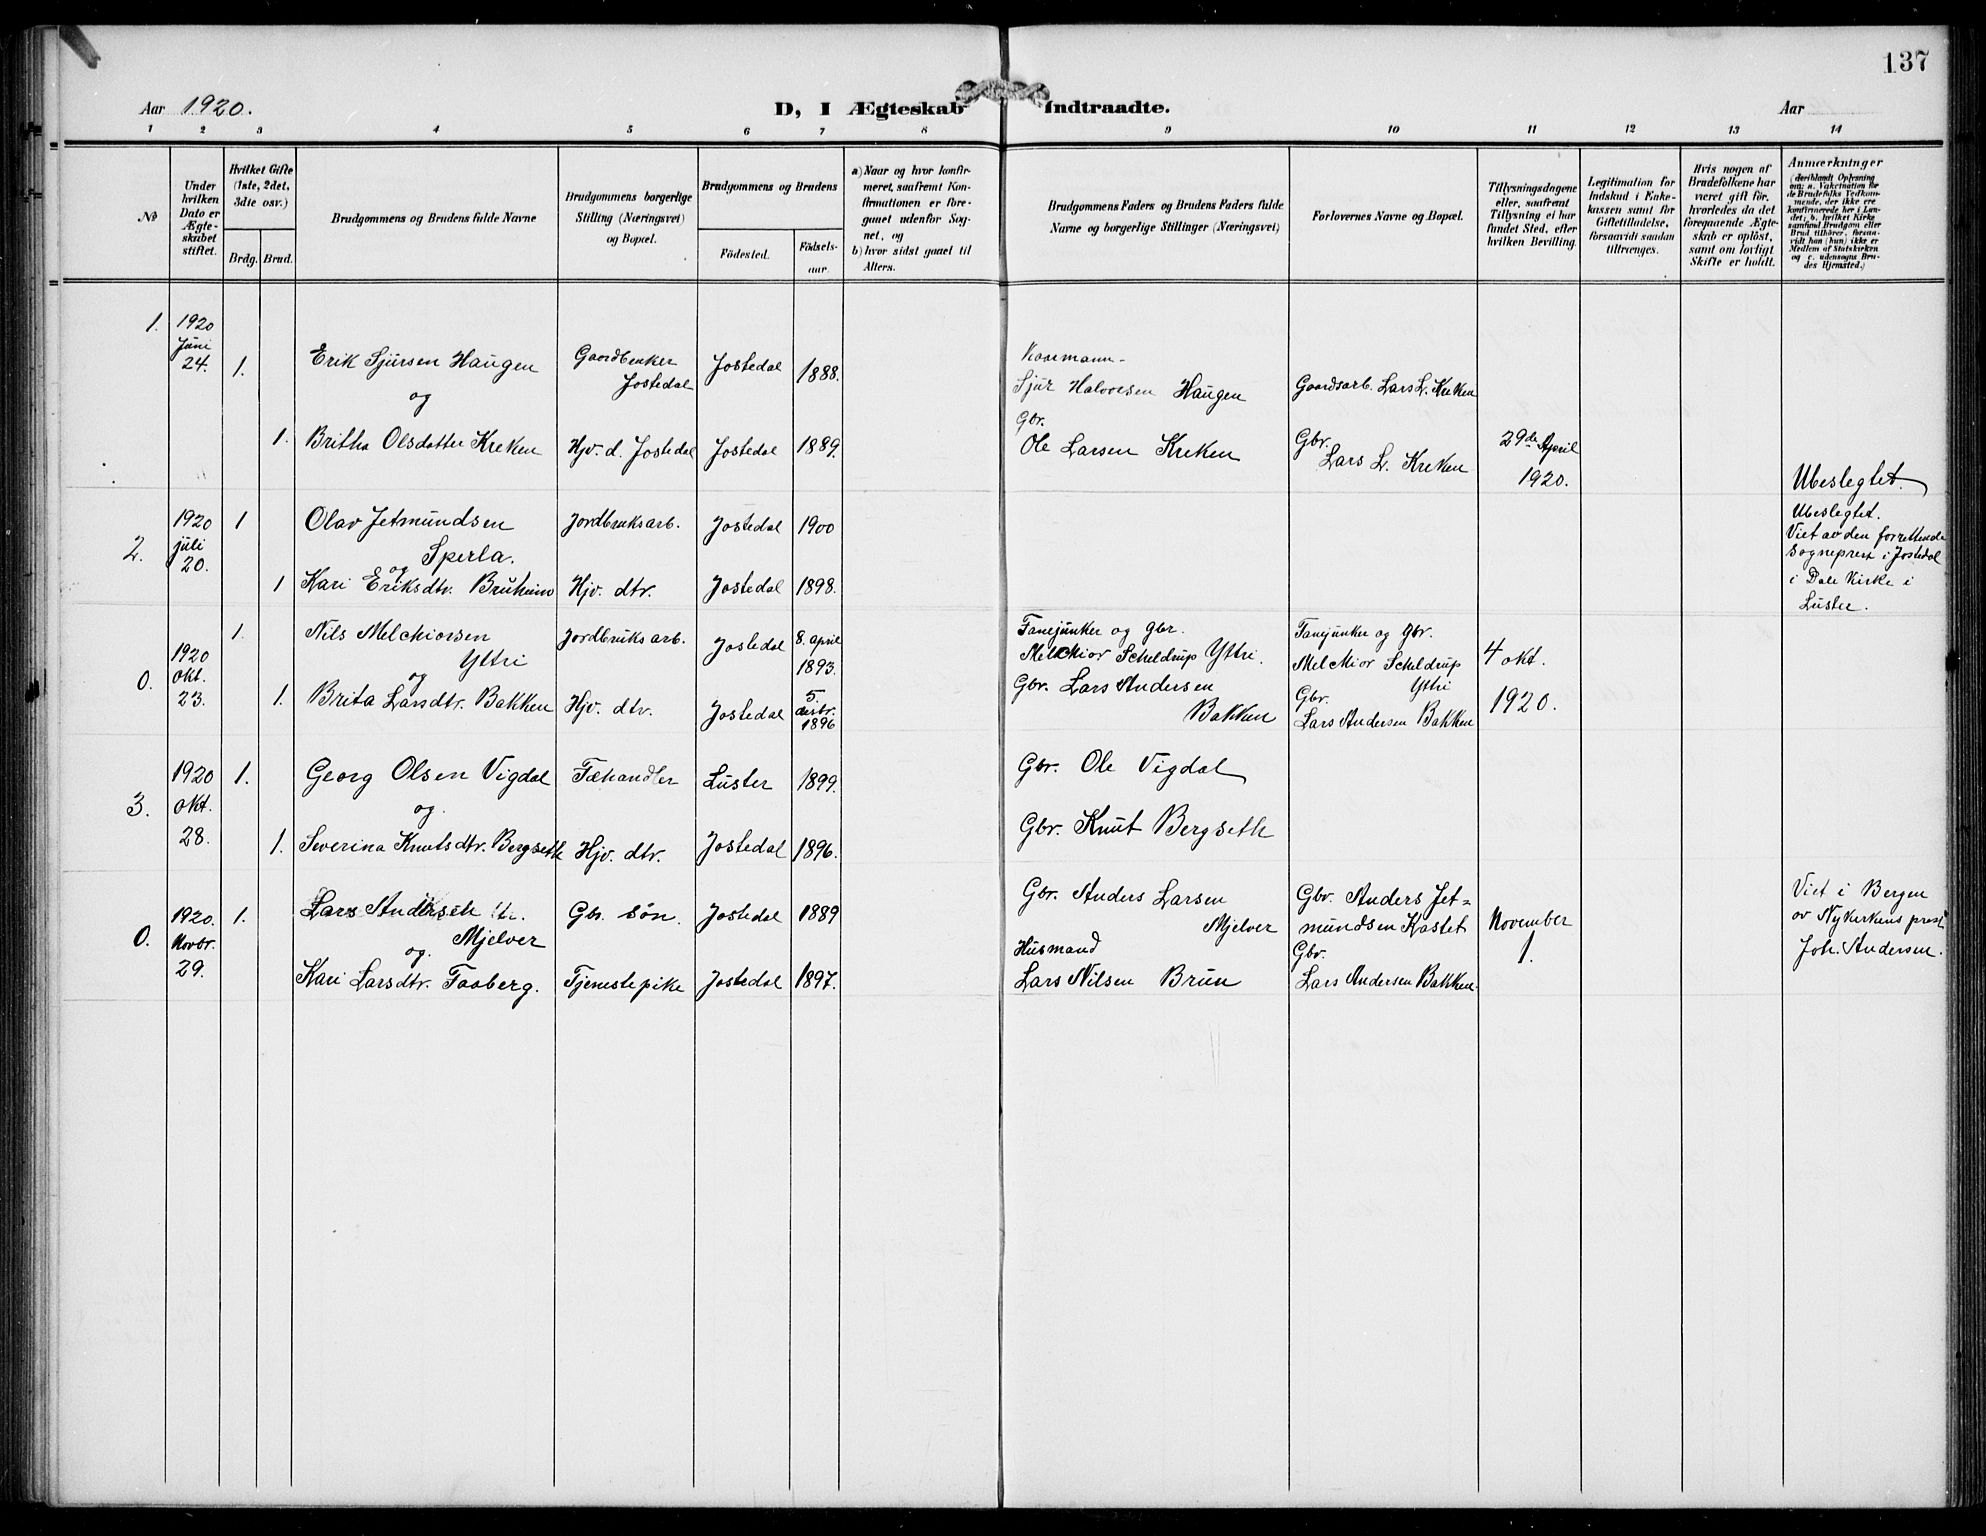 137
Aar 1920. D, I Ægteskab Indtraadte. Aar
1 2 3 4 5 6 7 8 9 10 11 12 13 14
No
Under hvilken Dato er Ægte-skabet stiftet.
Hvilket Gifte (1ste, 2det, 3die osv.)
Brdg. Brud.
Brudgommens og Brudens fulde Navne
Brudgommens borgerlige Stilling (Næringsvei) og Bopæl.
Brudgommens og Brudens
Födested. Födsels-aar.
a) Naar og hvor konfir-meret, saafremt Kon-firmationen er fore-gaaet udenfor Sog-net, og
b) hvor sidst gaaet til Alters.
Brudgommens Faders og Brudens Faders fulde Navne og borgerlige Stillinger (Næringsvei)
Forlovernes Navne og Bopæl.
Tillysningsdagene eller, saafremt Tillysning ei har fundet Sted, efter hvilken Bevilling.
Legitimation for Indskud i Enke-kassen samt for Giftetilladelse, forsaavidt saadan tiltrænges.
Hvis nogen af Brudefolkene har været gift för, hvorledes da det foregaaende Ægte-skab er oplöst, samt om lovligt Skifte er holdt.
Anmærkninger (deriblandt Oplysning om: a. Vakcination for de Brudefolks Vedkom-mende, der ikke ere konfirmerede her i Lan-det; b. hvilket Kirke-samfund Brudgom eller Brud tilhörer, forsaa-vidt han (hun) ikke er Medlem af Statskirken og c. udensogns Bru-des Hjemsted.)
1. 1920 Juni 24. 1. Erik Sjursen Haugen Gaardbruker Jostedal Jostedal 1888. Kaarmann Sjur Halvorsen Haugen Gaardsarb. Lars L. Kreken
og
1. Britha Olsdatter Kreken Hjv. d. Jostedal Jostedal 1889. Gbr. Ole Larsen Kreken Gbr. Lars L. Kreken 29de April 1920. Ubeslegtet.
2. 1920 juli 20. 1 Olav Jetmundsen Sperla. Jordbruksarb. Jostedal 1900 Ubeslegtet.
Viet av den forrettende
sogneprest i Jostedal
i Dale Kirke i
Luster.
og
1 Kari Eriksdtr. Bruheim Hjv. dtr. Jostedal 1898.
0. 1920 Okt. 23. 1. Nils Melchiorsen Yttri Jordbruksarb. Jostedal 8. april 1893. Fanejunker og gbr. Melchior Scheldrup Yttri. Fanejunker og gbr. Melchior Scheldrup Yttri 4 okt. 1920.
og
1. Brita Larsdtr. Bakken Hjv. dtr. Jostedal 5. desbr. 1896 Gbr. Lars Andersen Bakken Gbr. Lars Andersen Bakken
3. 1920 Okt. 28. 1. Georg Olsen Vigdal Fæhandler Luster 1899. Gbr. Ole Vigdal
og
1. Severina Knutsdtr. Bergseth Hjv. dtr. Jostedal 1896. Gbr. Knut Bergseth
0. 1920. Novbr. 29. 1. Lars Andersen Mjelver Gbr. søn. Jostedal 1889 Gbr. Anders Larsen Mjelver Gbr. Anders Jet=mundsen Kastet November 1. Viet i Bergen
av Nykirkens prest
Joh. Andersen.
og
Kari Larsdtr. Faaberg. Tjenestepike Jostedal 1897. Husmand Lars Nilsen Brun Gbr. Lars Andersen Bakken.